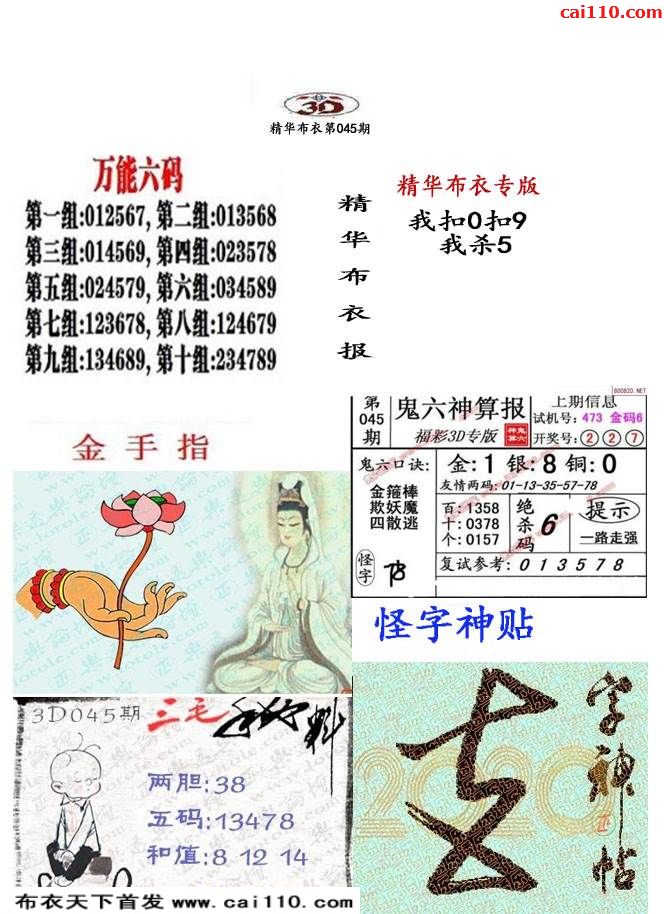 cai110.com
3D
精华布衣第045期
万能六码
第一组:012567, 第二组:013568
第三组:014569, 第四组:023578
第五组:024579, 第六组:034589
第七组:123678, 第八组:124679
第九组:134689, 第十组:234789
精华布衣报
精华布衣专版
我扣0扣9
我杀5
800820.NET
第045期
鬼六神算报
福彩3D专版
上期信息
试机号: 473 金码6
开奖号: 2 2 7
鬼六口诀:
金箍棒
欺妖魔
四散逃
金:1 银:8 铜:0
友情两码: 01-13-35-57-78
百: 1358
十: 0378
个: 0157
绝杀码 6
提示
一路走强
怪字
复试参考: 0 1 3 5 7 8
金手指
怪字神贴
3D045期 三毛
两胆:38
五码:13478
和值:8 12 14
2020
字神帖
布衣天下首发 www.cai110.com